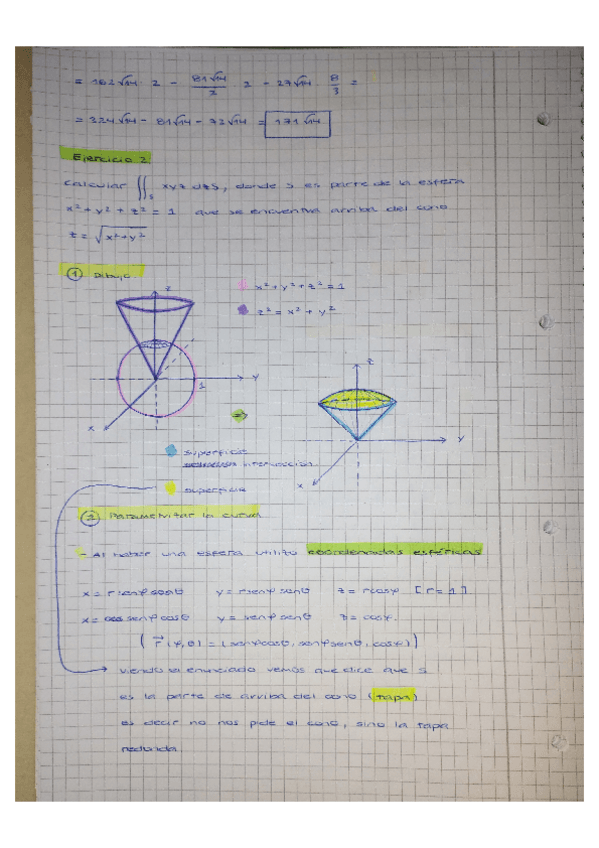 = 162√14 · 2 - 81√14/2 · 2 - 27√14 · 8/3 =
= 324√14 - 81√14 - 72√14 = 171√14
Ejercicio 2
Calcular ∬s xyz dS, donde S es parte de la esfera
x² + y² + z² = 1 que se encuentra arriba del cono
z = √x²+y²
① Dibujo
z
x² + y² + z² = 1
z² = x² + y²
1
y
x
⇒
z
y
x
superficie
intersección
superficie
② Parametrizar la curva
- Al haber una esfera utilizo coordenadas esféricas
x = r senφ cosθ y = r senφ senθ z = r cosφ [r = 1]
x = senφ cosθ y = senφ senθ z = cosφ.
( r⃗ (φ,θ) = (senφ cosθ, senφ senθ, cosφ) )
viendo el enunciado vemos que dice que S
es la parte de arriba del cono (tapa)
es decir no nos pide el cono, sino la tapa
redonda.